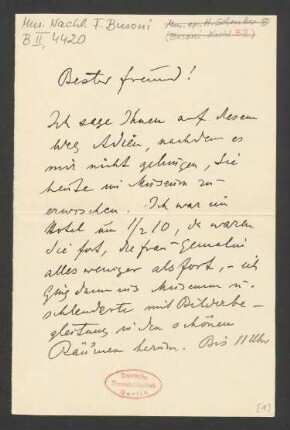 Mus. Nachl. F. Busoni
B II, 4420
Mus. ep. H. Schenker 8
(Busoni-Nachl. B II)
Bester Freund!
Ich sage Ihnen auf diesem
Weg Adieu, nachdem es
mir nicht gelungen, Sie
heute im Museum zu
erwischen. Ich war im
Hotel um 1/2 10, da waren
Sie fort, die Frau Gemalin
alles weniger als fort, – ich
ging dann ins Museum u.
schlenderte mit Bilderbe-
gleitung in den schönen
Räumen herum. Bis 11 Uhr
Deutsche
Staatsbibliothek
Berlin
[1]